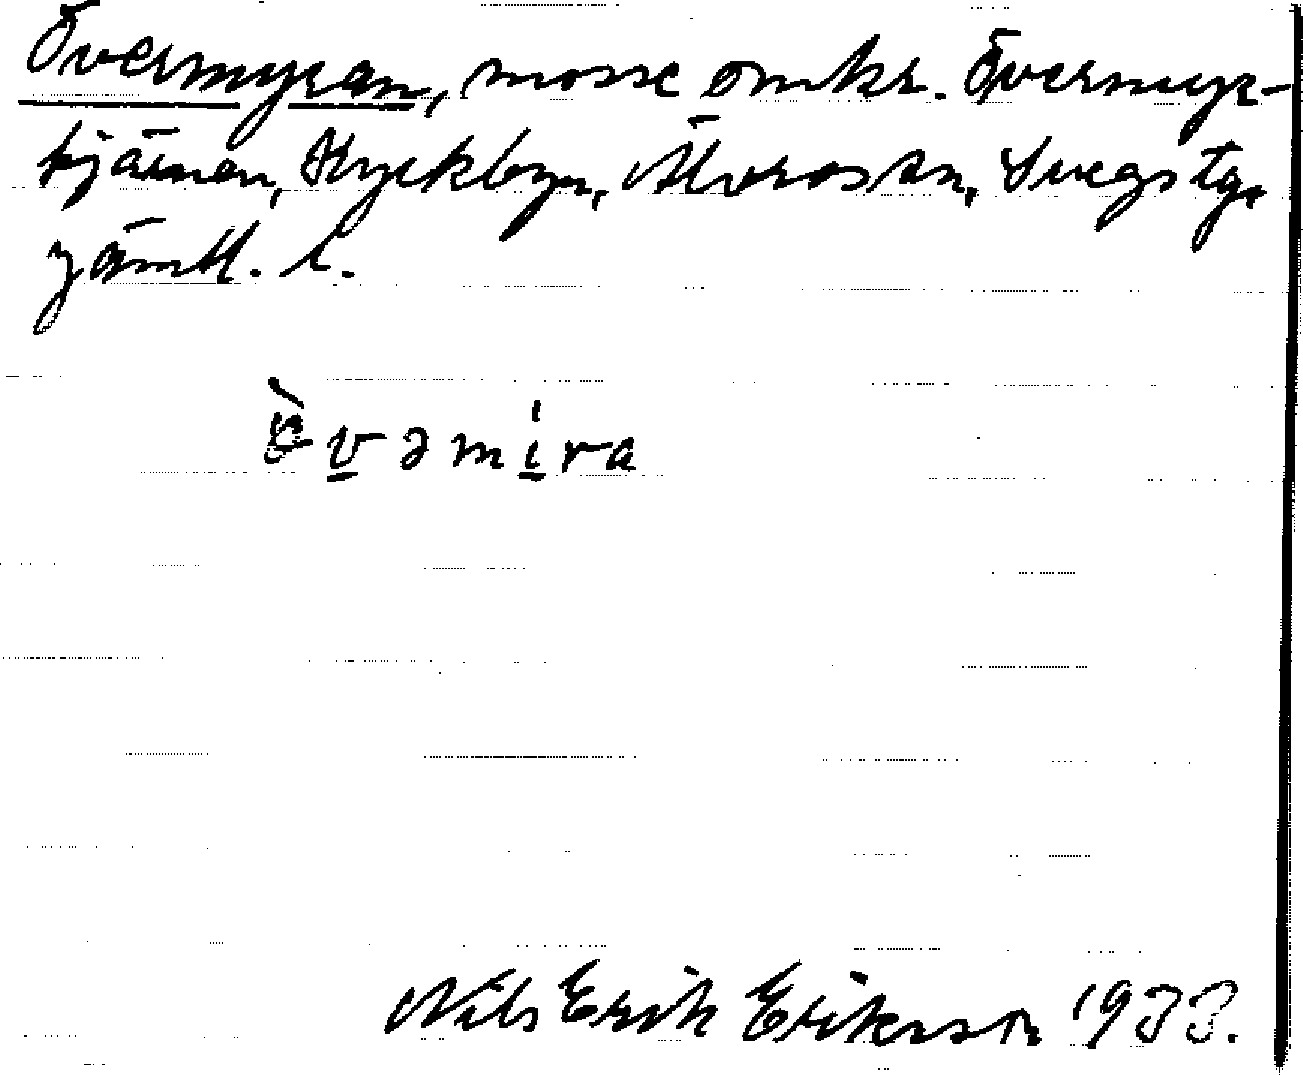 Övermyran, mosse omkr. Övermyr-
tjärnen, Kryckbyn, Älvros sn, Svegs tg,
Jämtl. l.
vəmira
Nils Erik Erikson 1933.